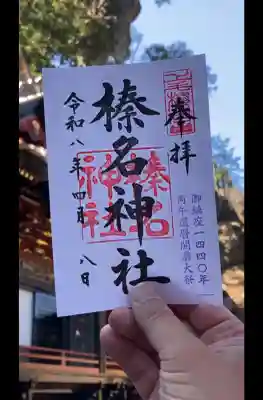 奉拝
榛名神社
榛名神社
令和八年四月八日
御鎮座一四四〇年
丙午還暦開扉大祭